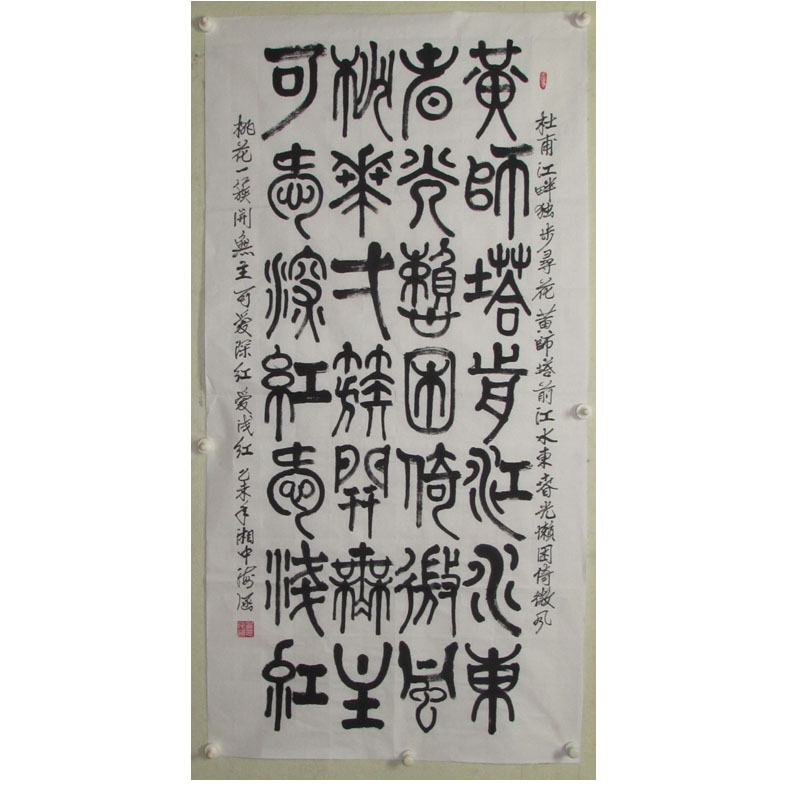 杜甫江畔独步尋花黄師塔前江水東春光懒困倚微风
黄師塔前江水東
春光懶困倚微風
桃華弌簇開無主
可愛深紅愛淺紅
桃花一簇開無主可爱深红爱浅红乙未年湘中海涵